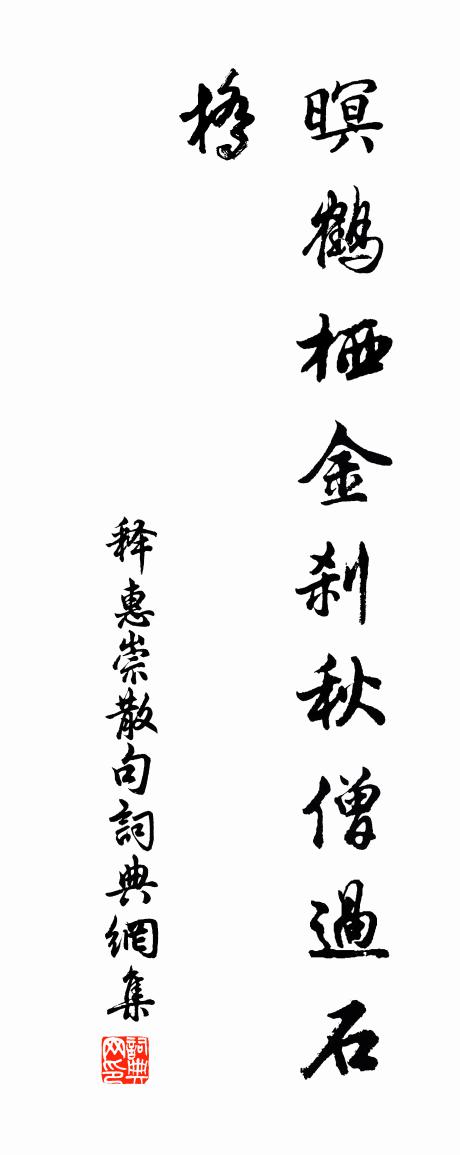 暝鶴栖金刹秋僧過石
橋
释惠崇散句詞典網集
詞典网印